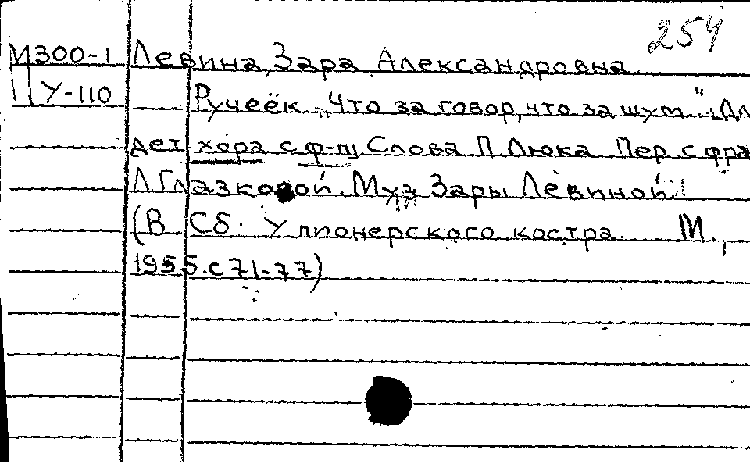 254
М300-1 Левина, Зара Александровна
У-110 Ручеёк „Что за говор, что за шум". Дл
дет. хора с ф-п. Слова П. Люка. Пер. с фра
Л. Глазковой. Муз. Зары Левиной.
(В Сб. У пионерского костра. М.,
1955. с 71-77)